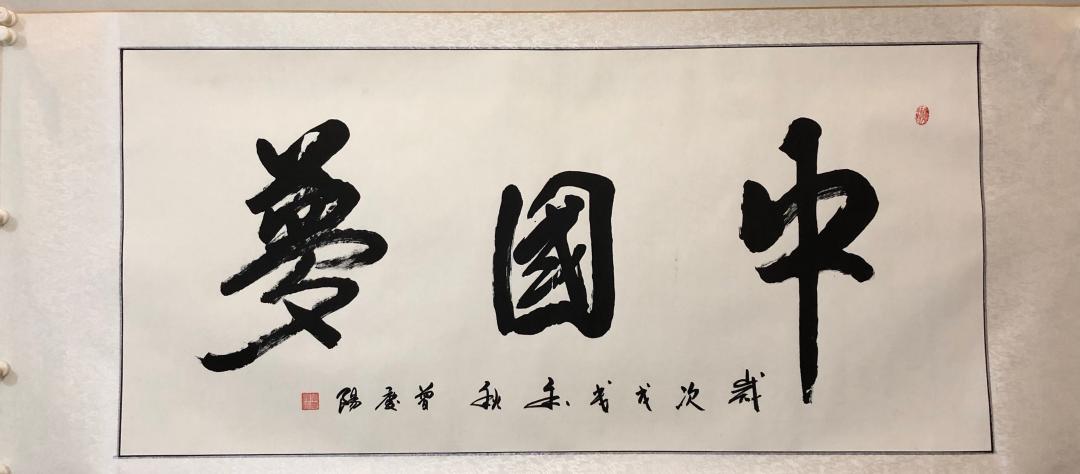 中國夢
歲次戊戌年秋 曾慶陽